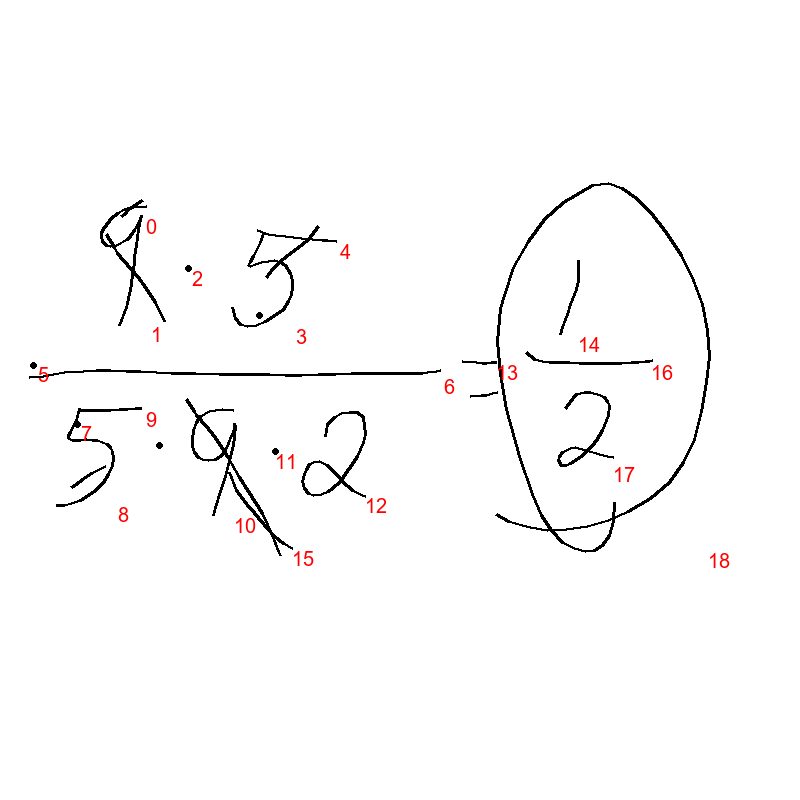 9 · 5
5 · 9 · 2
= 1
2
0 1 2 3 4 5 6 7 8 9 10 11 12 13 14 15 16 17 18